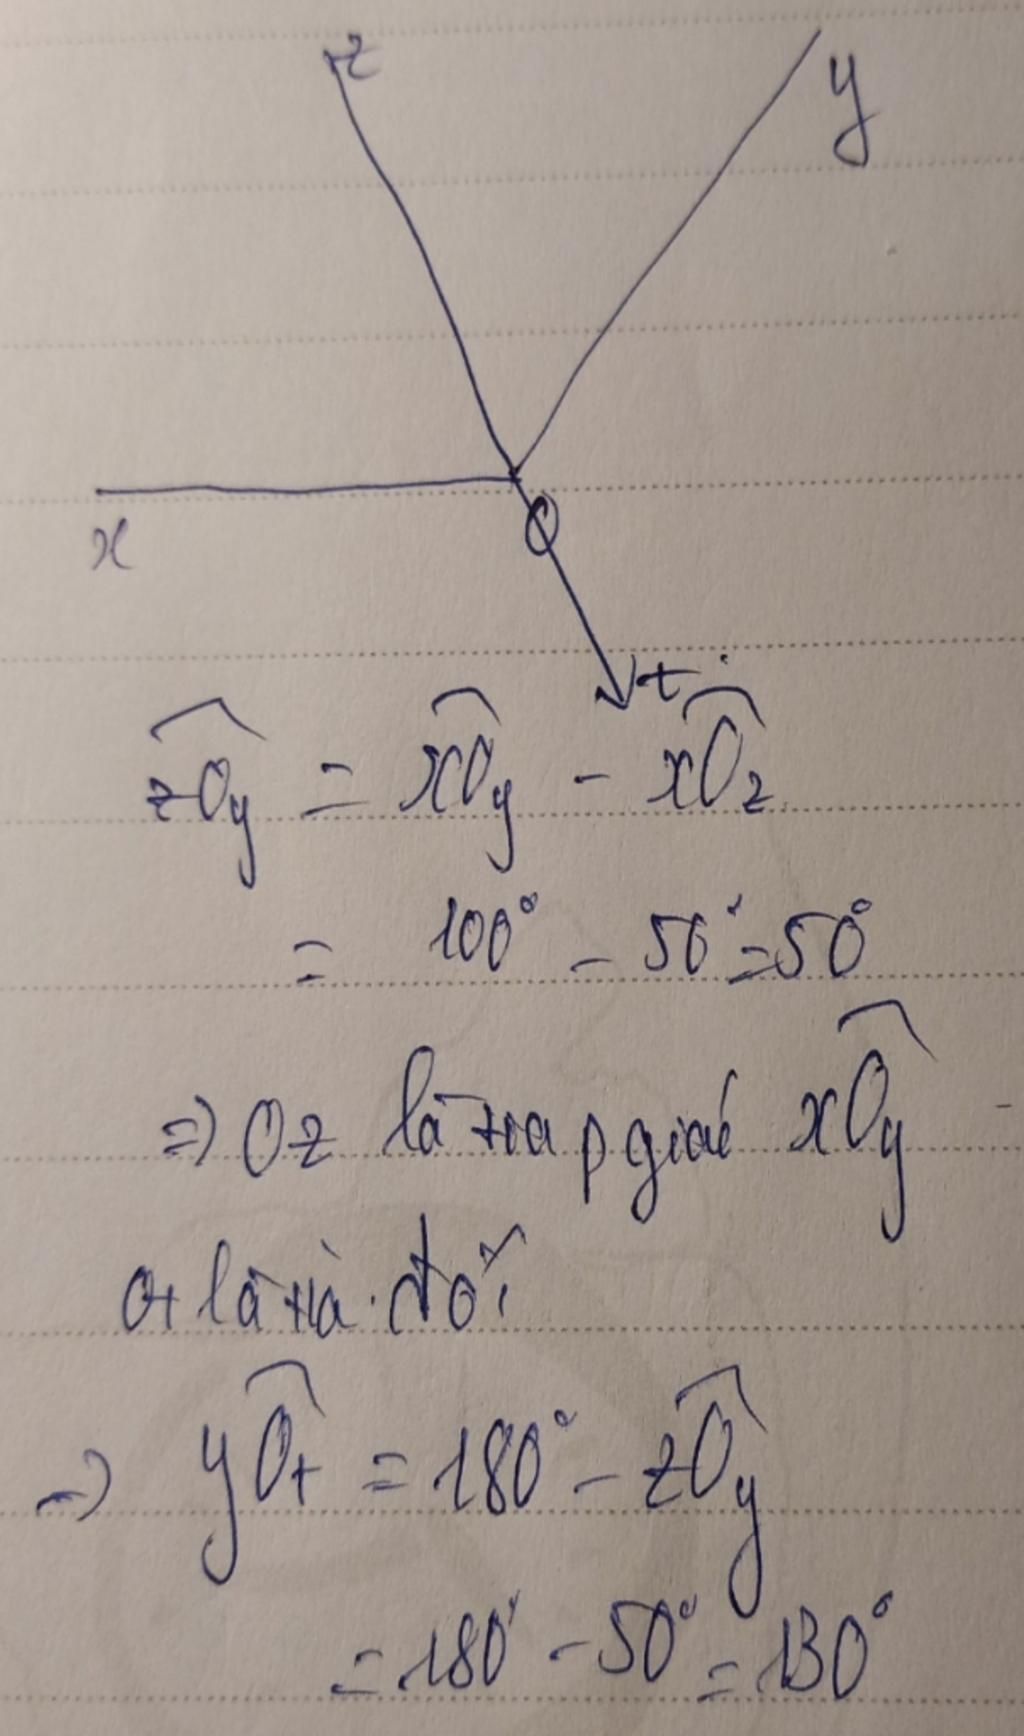 z
y
x
O
t
zOy = xOy - xOz
= 100° - 50° = 50°
=> Oz là tia p giác xOy
Ot là tia đối
=> yOt = 180° - zOy
= 180° - 50° = 130°